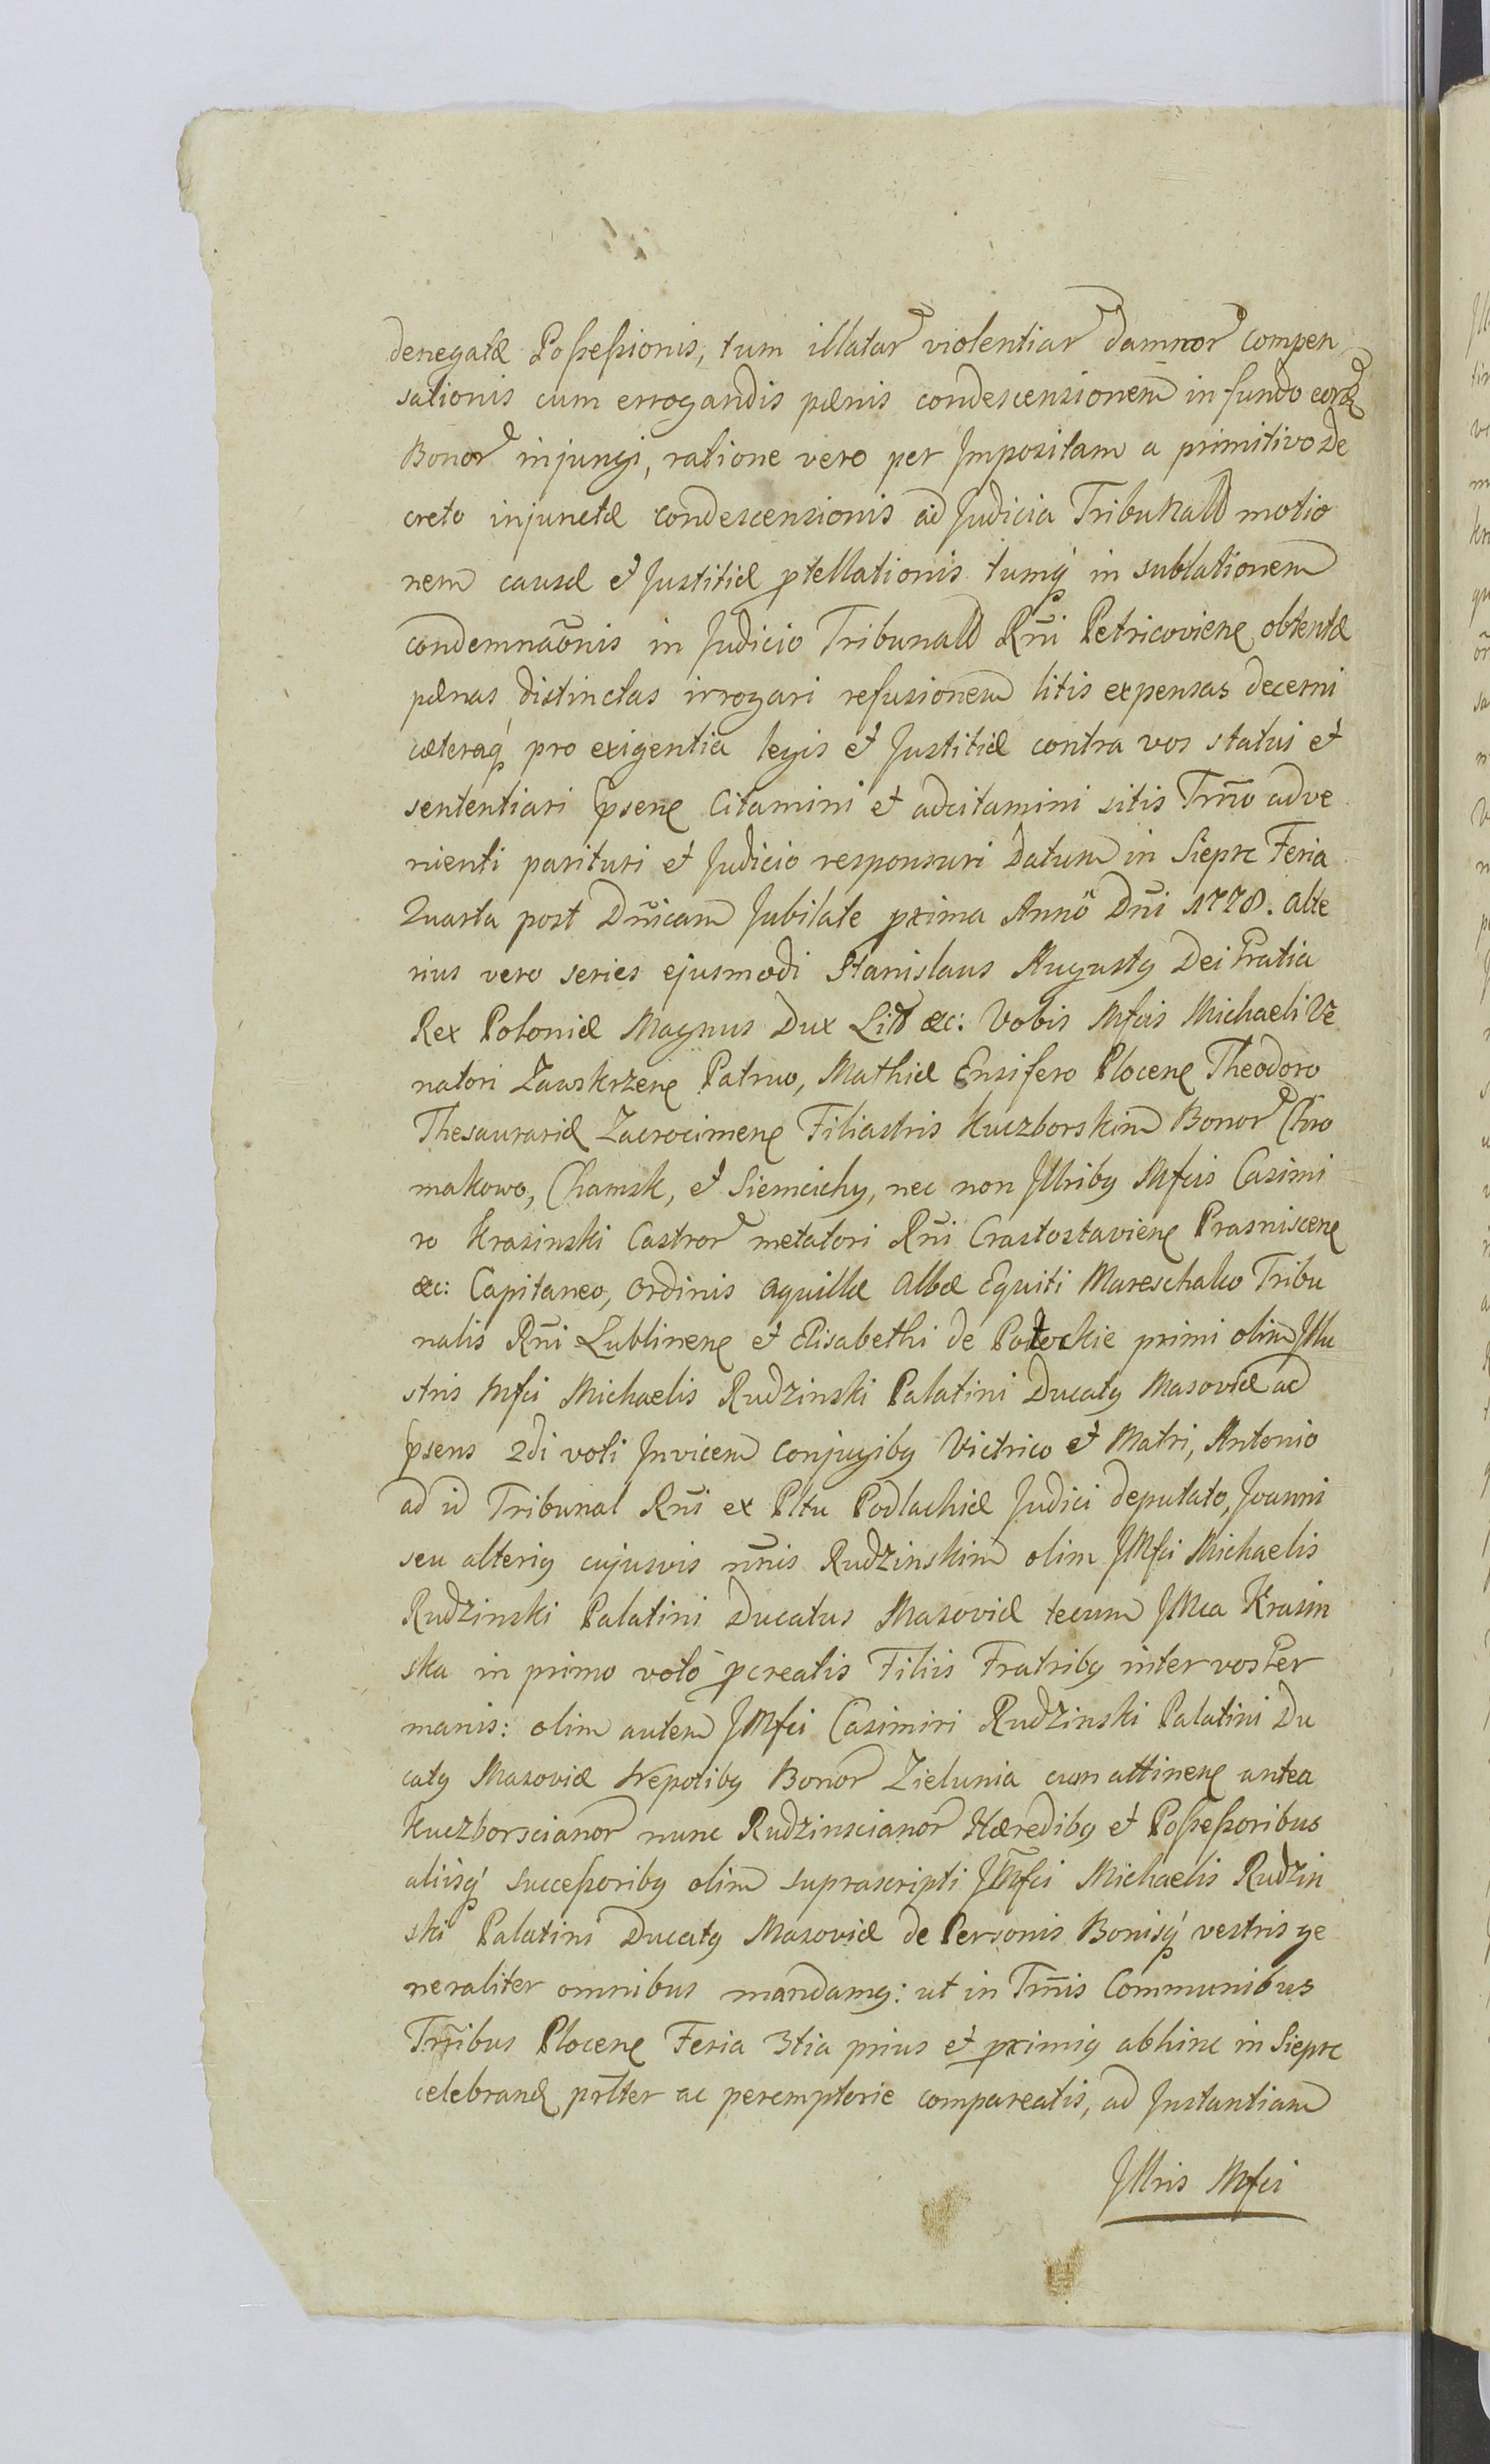 denegatæ Poſseſsionis, tum illatar violentiar damnor Compen
sationis cum errogandis pænis condescensionem in fundo eord
Bonor injungi, ratione vero per Impositam a primitivo De
creto injunctæ condescensionis ad Judicia Tribunald motio
nem causæ et Justitiæ ptellationis tumq in sublationem
condemnaōnis in Judicio Tribunald Rñi Petricoviene obtentæ
pænas distinctas irrogari refusionem litis expensas decerni
cæteraq pro exigentia legis et Justitiæ contra vos statui et
sententiari psene Citamini et adcitamini sitis Trño adve
nienti parituri et Judicio responsuri Datum in Siepre Feria
Quarta post Dñicam Jubilate pxima Anno Dñi 1778. alte
rius vero series ejusmodi Stanislaus Augusty Dei Gratia
Rex Poloniæ Magnus Dux Litt æc: Vobis Mfcis Michaeli Ve
natori Zawskrzene Patruo, Mathiæ Ensifero Plocene Theodoro
Thesaurariæ Zacrocimene Filiastris Kuczborskim Bonor Chro
makowo, Chamsk, et Siemcichy, nec non Jllriby Mfcis Casimi
ro Krasinski Castror metatori Rñi Crastostaviene Prasniscene
æc: Capitaneo, ordinis aquillæ albæ Equiti Mareschalco Tribu
nalis Rñi Lublinene et Elisabethi de Potockie primi olim Jllu
stris Mfci Michaelis Rudzinski Palatini Ducaty Masoviæ ac
psens 2di voti Invicem conjugiby Victrico et Matri, Antonio
ad id Tribunal Rñi ex Pltu Podlachiæ Judici deputato, Joanni
seu alteriy cujusvis nñis Rudzinskim olim JMfci Michaelis
Rudzinski Palatini Ducatus Masoviæ tecum JMca Krasin
ska in primo voto pcreatis Filiis Fratriby inter vos Ger
manis: olim autem JMfci Casimiri Rudzinski Palatini Du
caty Masoviæ Nepotiby Bonor Zielunia cum attinene antea
Kuczborscianor nunc Rudzinscianor Hærediby et Poſseſsoribus
aliisq Succeſsoriby olim suprascripti JMfci Michaelis Rudzin
ski Palatini Ducaty Masoviæ de Personis Bonisq vestris ge
neraliter omnibus mandamy: ut in Trñis Communibus
Trñibus Plocene Feria 3tia prius et pximiy abhinc in Siepre
celebrand prlter ac peremptorie compareatis, ad Instantiam
Jllris Mfci